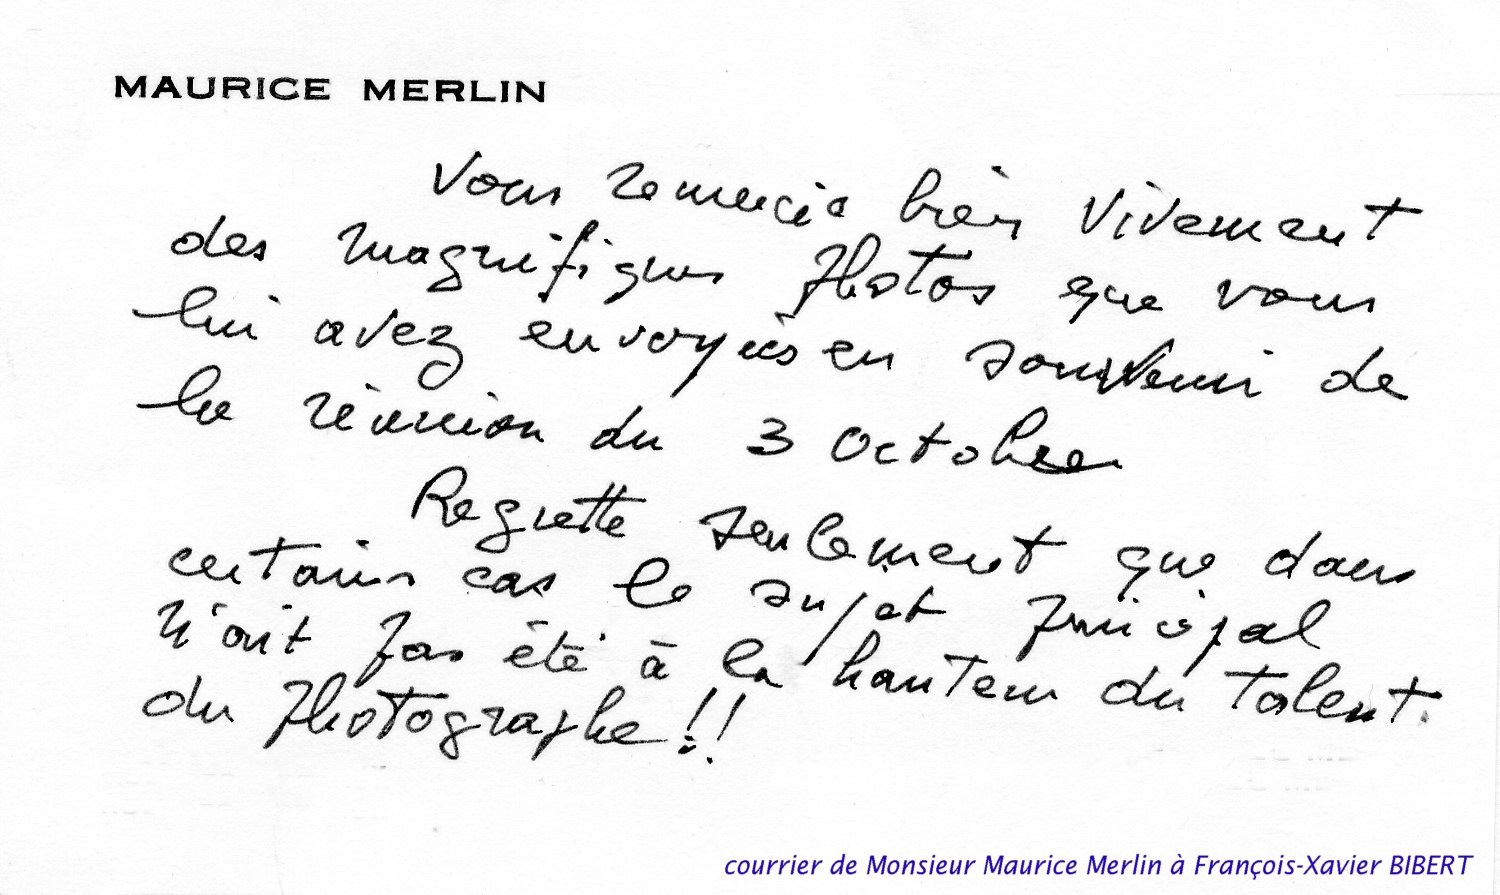 MAURICE MERLIN
Vous remercie bien vivement
des magnifiques photos que vous
lui avez envoyées en souvenir de
la réunion du 3 Octobre
Regrette seulement que dans
certains cas le sujet principal
n'ait pas été à la hauteur du talent
du photographe !!
courrier de Monsieur Maurice Merlin à François-Xavier BIBERT